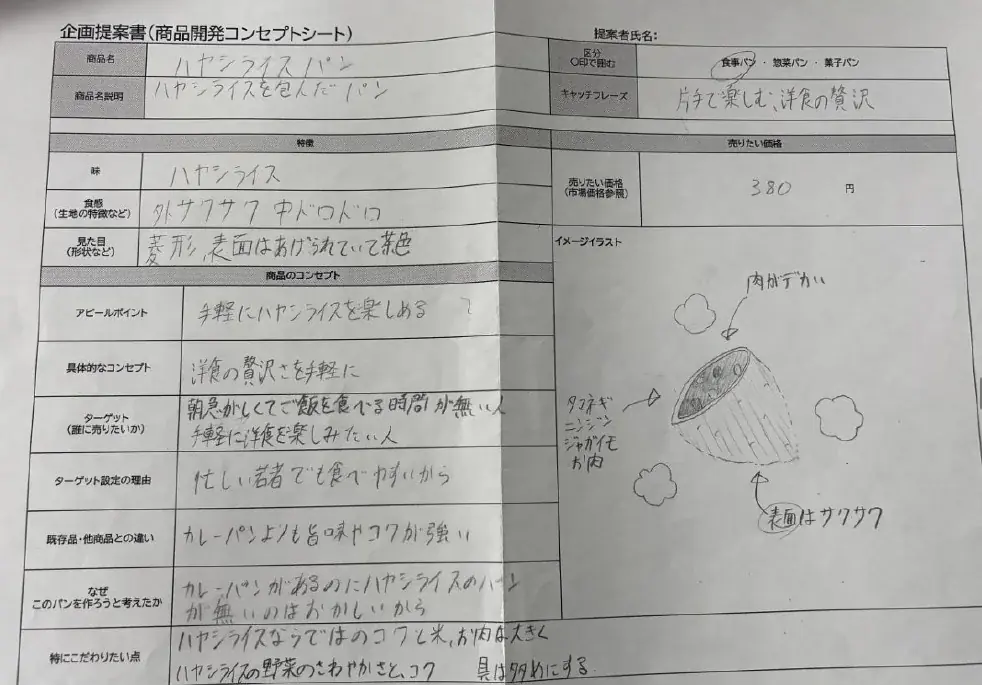 企画提案書(商品開発コンセプトシート)
提案者氏名:
商品名
ハヤシライスパン
区分
○印で囲む
食事パン ・ 惣菜パン ・ 菓子パン
商品名説明
ハヤシライスを包んだパン
キャッチフレーズ
片手で楽しむ、洋食の贅沢
特徴
売りたい価格
味
ハヤシライス
売りたい価格
(市場価格参照)
380 円
食感
(生地の特徴など)
外サクサク 中ドロドロ
見た目
(形状など)
菱形、表面はあげられていて茶色
イメージイラスト
商品のコンセプト
アピールポイント
手軽にハヤシライスを楽しめる
具体的なコンセプト
洋食の贅沢さを手軽に
ターゲット
(誰に売りたいか)
朝急がしくてご飯を食べる時間が無い人
手軽に洋食を楽しみたい人
ターゲット設定の理由
忙しい若者でも食べやすいから
既存品・他商品との違い
カレーパンよりも旨味やコクが強い
なぜ
このパンを作ろうと考えたか
カレーパンがあるのにハヤシライスのパン
が無いのはおかしいから
特にこだわりたい点
ハヤシライスならではのコクと米、お肉は大きく
ハヤシライスの野菜のさわやかさと、コク 具は多めにする
肉がデカい
タマネギ
ニンジン
ジャガイモ
お肉
表面はサクサク